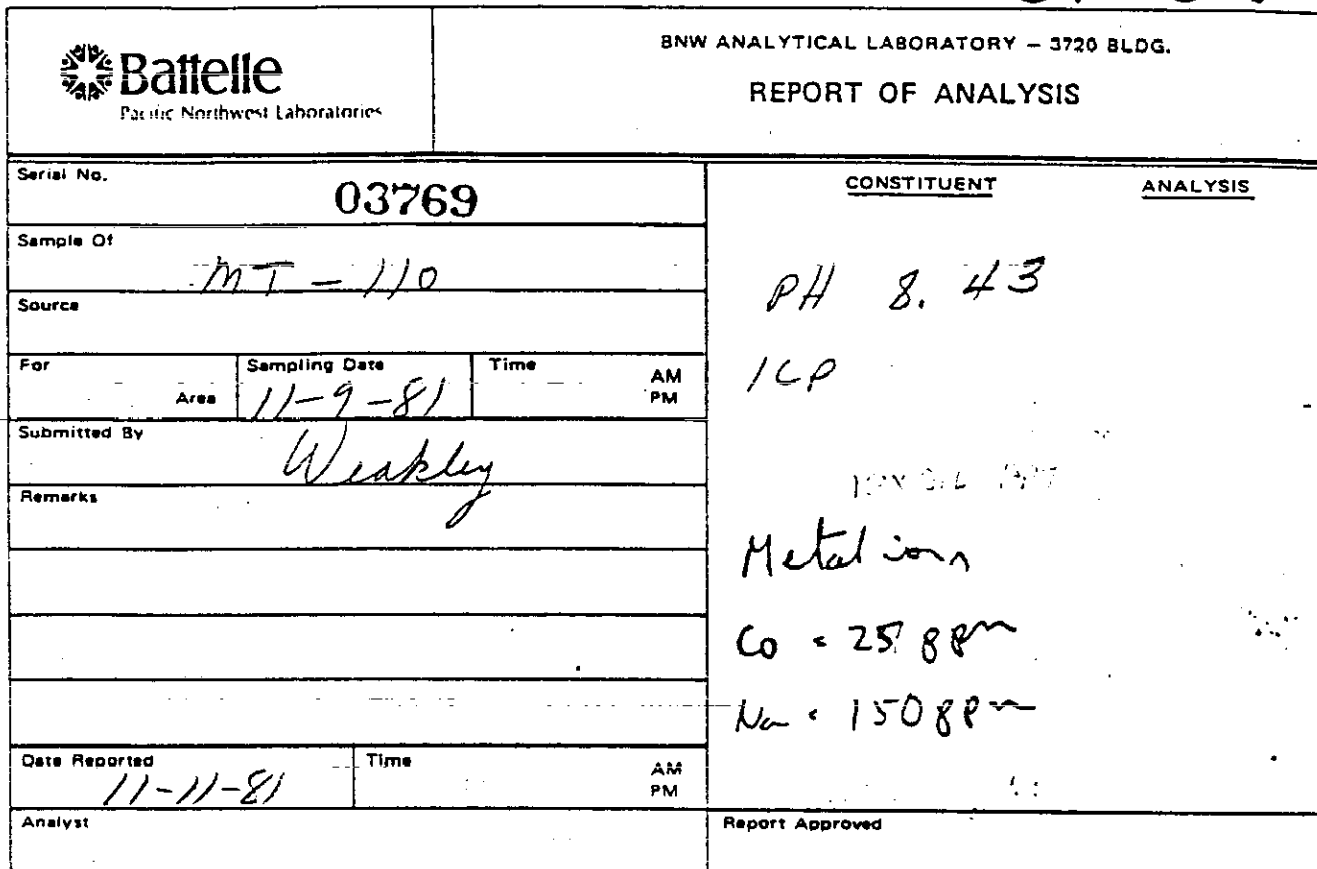 Battelle
Pacific Northwest Laboratories
BNW ANALYTICAL LABORATORY – 3720 BLDG.
REPORT OF ANALYSIS
Serial No.
03769
Sample Of
MT - 110
Source
For
Area
Sampling Date
11-9-81
Time
AM
PM
Submitted By
Weakley
Remarks
Date Reported
11-11-81
Time
AM
PM
Analyst
CONSTITUENT ANALYSIS
PH 8.43
ICP
Metal ions
Co = 25 ppm
Na = 150 ppm
Report Approved